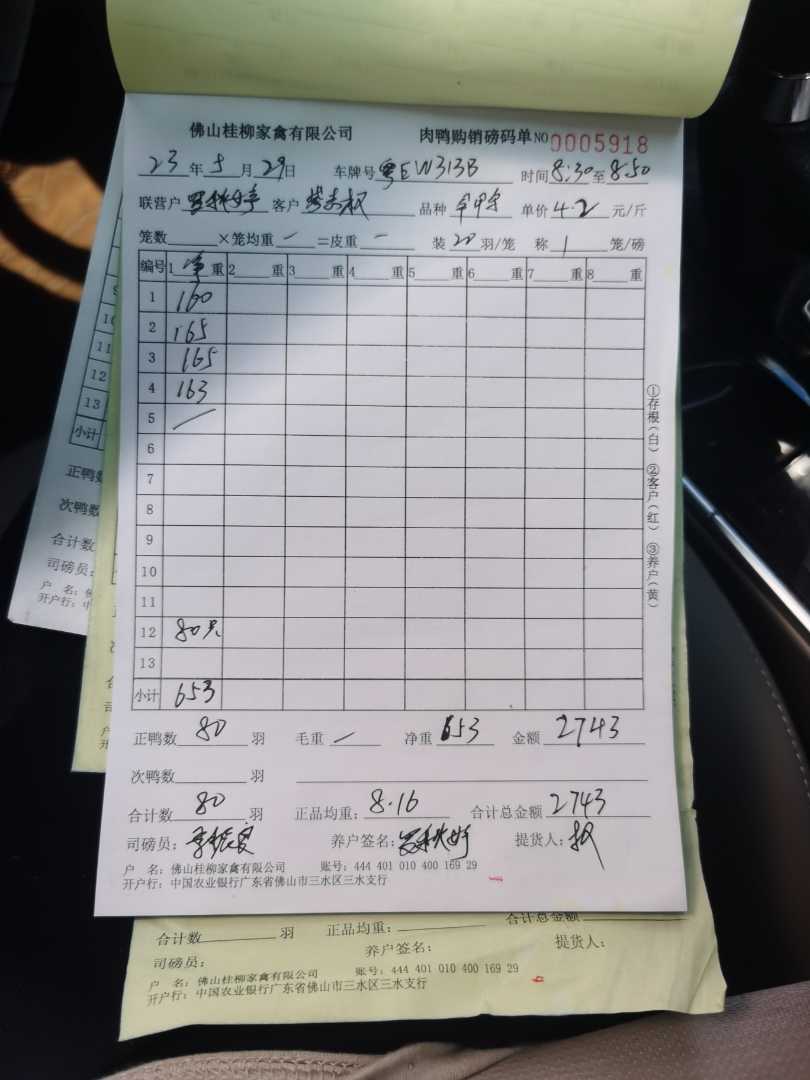 佛山桂柳家禽有限公司 肉鸭购销磅码单 NO 0005918
23 年 5 月 29 日 车牌号 粤EW313B 时间 8:30 至 8:50
联营户 客户 品种 单价 4.2 元/斤
笼数 ×笼均重 — =皮重 — 装 20 羽/笼 称 1 笼/磅
编号 1 净 重 2 重 3 重 4 重 5 重 6 重 7 重 8 重
1 160
2 165
3 165
4 163
5 /
6
7
8
9
10
11
12 80只
13
小计 653
正鸭数 80 羽 毛重 — 净重 653 金额 2743
次鸭数 羽
合计数 80 羽 正品均重: 8.16 合计总金额 2743
司磅员: 养户签名: 提货人: 权
户 名: 佛山桂柳家禽有限公司 账号: 444 401 010 400 169 29
开户行: 中国农业银行广东省佛山市三水区三水支行
①存根(白) ②客户(红) ③养户(黄)
合计数 羽 正品均重: 合计总金额
司磅员: 养户签名: 提货人:
户 名: 佛山桂柳家禽有限公司 账号: 444 401 010 400 169 29
开户行: 中国农业银行广东省佛山市三水区三水支行
10
11
12
13
小计
正鸭数
次鸭数
合计数
司磅员:
户 名: 佛
开户行: 中